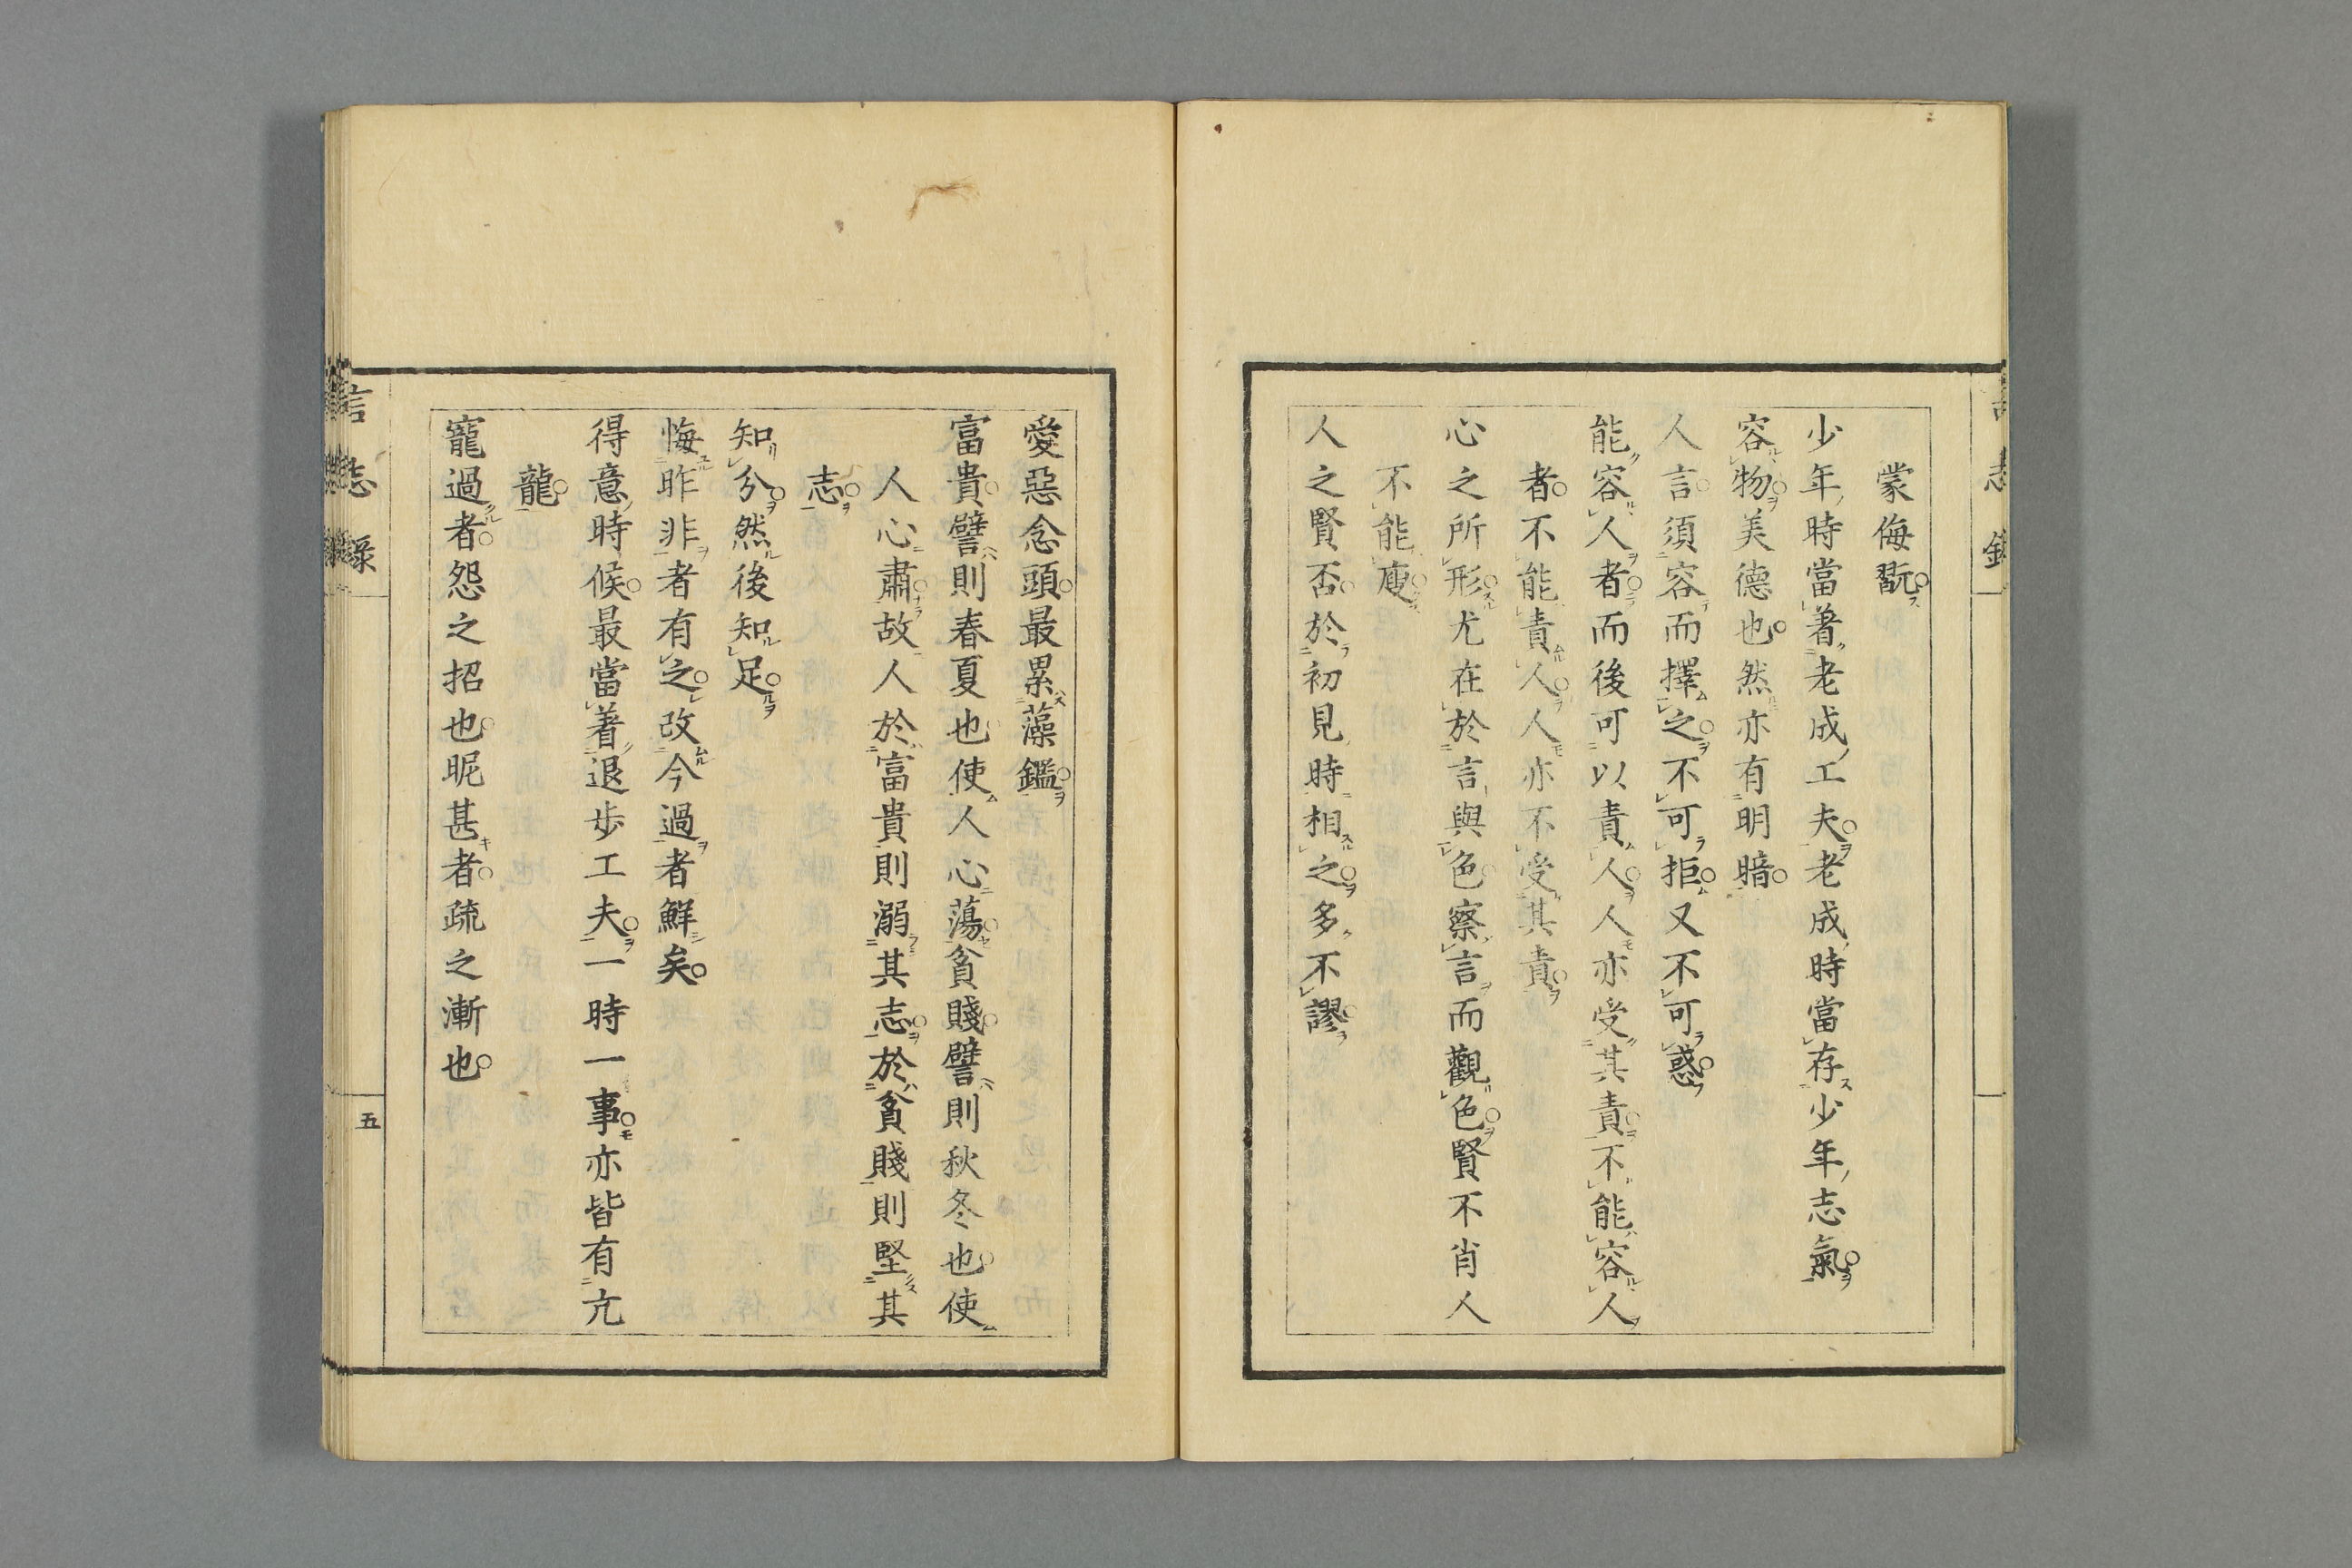 蒙侮翫
少年時當著老成工夫老成時當存少年志氣
容物美德也然亦有明暗
人言須容而擇之不可拒又不可惑
能容人者而後可以責人人亦受其責不能容人
者不能責人人亦不受其責
心之所形尤在於言與色察言而觀色賢不肖人
不能廋
人之賢否於初見時相之多不謬
愛惡念頭最累藻鑑
富貴譬則春夏也使人心蕩貧賤譬則秋冬也使
人心肅故人於富貴則溺其志於貧賤則堅其
志
知分然後知足
悔昨非者有之改今過者鮮矣
得意時候最當著退步工夫一時一事亦皆有亢
龍
寵過者怨之招也昵甚者疏之漸也
言志録
五